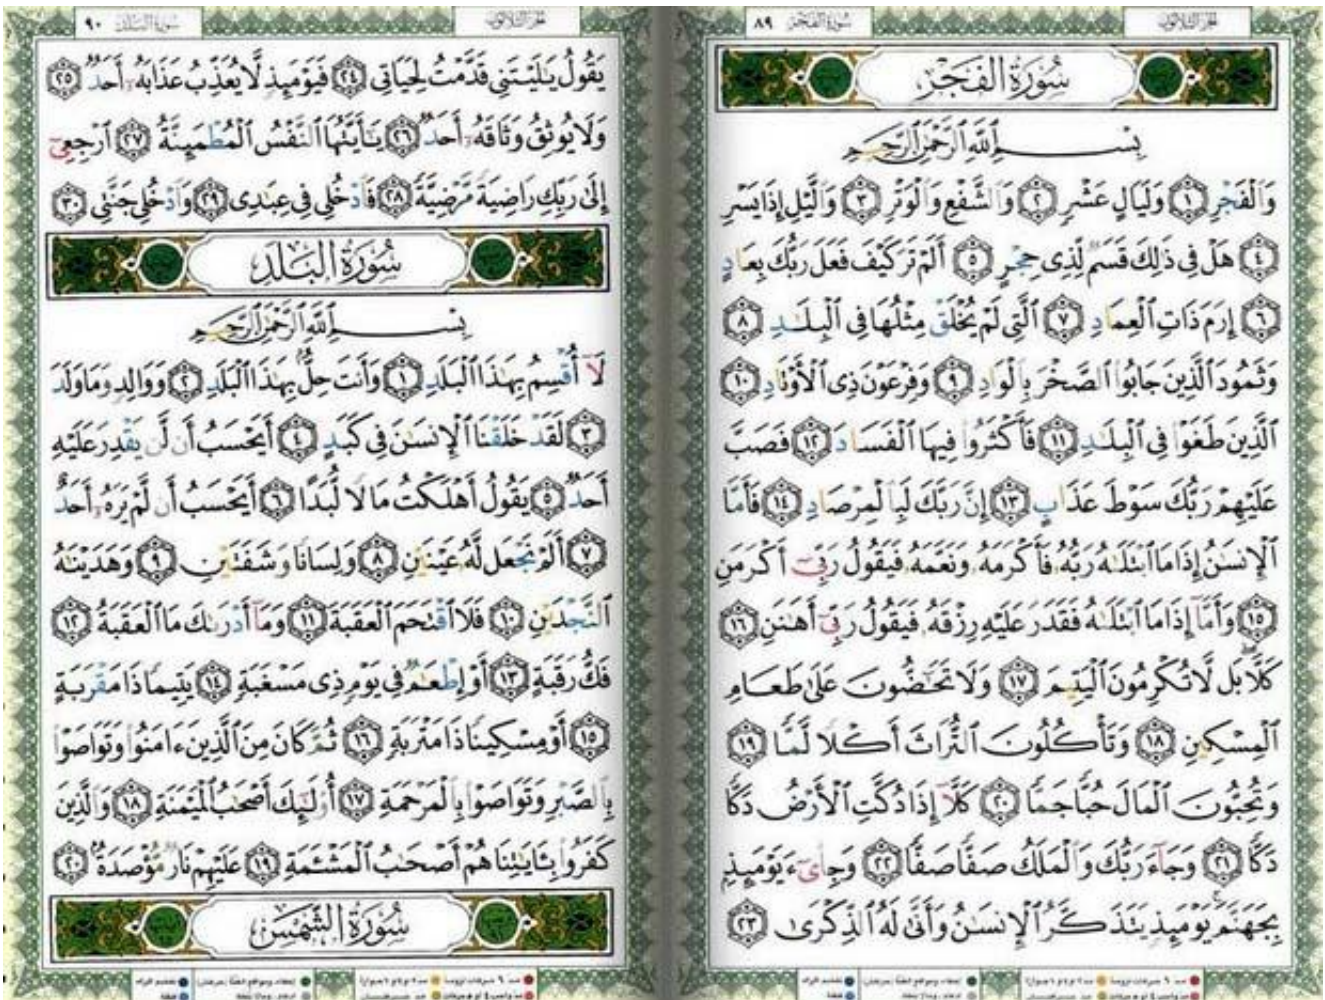 الجزء الثلاثون
سورة الفجر ٨٩
سُورَةُ الفَجْرِ
بِسْمِ ٱللَّهِ ٱلرَّحْمَٰنِ ٱلرَّحِيمِ
وَٱلْفَجْرِ ١ وَلَيَالٍ عَشْرٍ ٢ وَٱلشَّفْعِ وَٱلْوَتْرِ ٣ وَٱلَّيْلِ إِذَا يَسْرِ
٤ هَلْ فِى ذَٰلِكَ قَسَمٌ لِّذِى حِجْرٍ ٥ أَلَمْ تَرَ كَيْفَ فَعَلَ رَبُّكَ بِعَادٍ
٦ إِرَمَ ذَاتِ ٱلْعِمَادِ ٧ ٱلَّتِى لَمْ يُخْلَقْ مِثْلُهَا فِى ٱلْبِلَٰدِ ٨
وَثَمُودَ ٱلَّذِينَ جَابُوا۟ ٱلصَّخْرَ بِٱلْوَادِ ٩ وَفِرْعَوْنَ ذِى ٱلْأَوْتَادِ ١٠
ٱلَّذِينَ طَغَوْا۟ فِى ٱلْبِلَٰدِ ١١ فَأَكْثَرُوا۟ فِيهَا ٱلْفَسَادَ ١٢ فَصَبَّ
عَلَيْهِمْ رَبُّكَ سَوْطَ عَذَابٍ ١٣ إِنَّ رَبَّكَ لَبِٱلْمِرْصَادِ ١٤ فَأَمَّا
ٱلْإِنسَٰنُ إِذَا مَا ٱبْتَلَىٰهُ رَبُّهُۥ فَأَكْرَمَهُۥ وَنَعَّمَهُۥ فَيَقُولُ رَبِّىٓ أَكْرَمَنِ
١٥ وَأَمَّآ إِذَا مَا ٱبْتَلَىٰهُ فَقَدَرَ عَلَيْهِ رِزْقَهُۥ فَيَقُولُ رَبِّىٓ أَهَٰنَنِ ١٦
كَلَّا ۖ بَل لَّا تُكْرِمُونَ ٱلْيَتِيمَ ١٧ وَلَا تَحَٰٓضُّونَ عَلَىٰ طَعَامِ
ٱلْمِسْكِينِ ١٨ وَتَأْكُلُونَ ٱلتُّرَاثَ أَكْلًا لَّمًّا ١٩
وَتُحِبُّونَ ٱلْمَالَ حُبًّا جَمًّا ٢٠ كَلَّآ إِذَا دُكَّتِ ٱلْأَرْضُ دَكًّا
دَكًّا ٢١ وَجَآءَ رَبُّكَ وَٱلْمَلَكُ صَفًّا صَفًّا ٢٢ وَجِا۟ىٓءَ يَوْمَئِذٍۭ
بِجَهَنَّمَ ۚ يَوْمَئِذٍ يَتَذَكَّرُ ٱلْإِنسَٰنُ وَأَنَّىٰ لَهُ ٱلذِّكْرَىٰ ٢٣
الجزء الثلاثون
سورة البلد ٩٠
يَقُولُ يَٰلَيْتَنِى قَدَّمْتُ لِحَيَاتِى ٢٤ فَيَوْمَئِذٍ لَّا يُعَذِّبُ عَذَابَهُۥٓ أَحَدٌ ٢٥
وَلَا يُوثِقُ وَثَاقَهُۥٓ أَحَدٌ ٢٦ يَٰٓأَيَّتُهَا ٱلنَّفْسُ ٱلْمُطْمَئِنَّةُ ٢٧ ٱرْجِعِىٓ
إِلَىٰ رَبِّكِ رَاضِيَةً مَّرْضِيَّةً ٢٨ فَٱدْخُلِى فِى عِبَٰدِى ٢٩ وَٱدْخُلِى جَنَّتِى ٣٠
سُورَةُ البَلَدِ
بِسْمِ ٱللَّهِ ٱلرَّحْمَٰنِ ٱلرَّحِيمِ
لَآ أُقْسِمُ بِهَٰذَا ٱلْبَلَدِ ١ وَأَنتَ حِلٌّۢ بِهَٰذَا ٱلْبَلَدِ ٢ وَوَالِدٍ وَمَا وَلَدَ
٣ لَقَدْ خَلَقْنَا ٱلْإِنسَٰنَ فِى كَبَدٍ ٤ أَيَحْسَبُ أَن لَّن يَقْدِرَ عَلَيْهِ
أَحَدٌ ٥ يَقُولُ أَهْلَكْتُ مَالًا لُّبَدًا ٦ أَيَحْسَبُ أَن لَّمْ يَرَهُۥٓ أَحَدٌ
٧ أَلَمْ نَجْعَل لَّهُۥ عَيْنَيْنِ ٨ وَلِسَانًا وَشَفَتَيْنِ ٩ وَهَدَيْنَٰهُ
ٱلنَّجْدَيْنِ ١٠ فَلَا ٱقْتَحَمَ ٱلْعَقَبَةَ ١١ وَمَآ أَدْرَىٰكَ مَا ٱلْعَقَبَةُ ١٢
فَكُّ رَقَبَةٍ ١٣ أَوْ إِطْعَٰمٌ فِى يَوْمٍ ذِى مَسْغَبَةٍ ١٤ يَتِيمًا ذَا مَقْرَبَةٍ
١٥ أَوْ مِسْكِينًا ذَا مَتْرَبَةٍ ١٦ ثُمَّ كَانَ مِنَ ٱلَّذِينَ ءَامَنُوا۟ وَتَوَاصَوْا۟
بِٱلصَّبْرِ وَتَوَاصَوْا۟ بِٱلْمَرْحَمَةِ ١٧ أُو۟لَٰٓئِكَ أَصْحَٰبُ ٱلْمَيْمَنَةِ ١٨ وَٱلَّذِينَ
كَفَرُوا۟ بِـَٔايَٰتِنَا هُمْ أَصْحَٰبُ ٱلْمَشْـَٔمَةِ ١٩ عَلَيْهِمْ نَارٌ مُّؤْصَدَةٌۢ ٢٠
سُورَةُ الشَّمْسِ